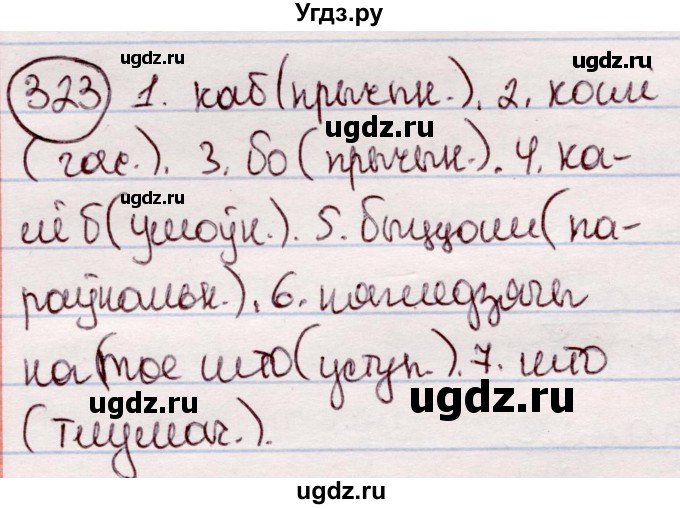 Угдз.ру
ugdz.ru
ugdz.ru
323 1. каб (прычын.). 2. коли
ugdz.ru
(час.). 3. бо (прычын.). 4. ка-
ugdz.ru
лі б (умоўн.). 5. быццам (па-
ugdz.ru
раўнальн.). 6. нягледзячы
на тое што (уступ.). 7. што
ugdz.ru
ugdz.ru
(тлумач.).
ugdz.ru